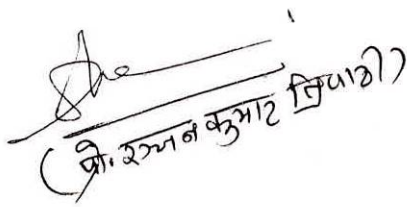 (प्रो. रञ्जन कुमार त्रिपाठी)